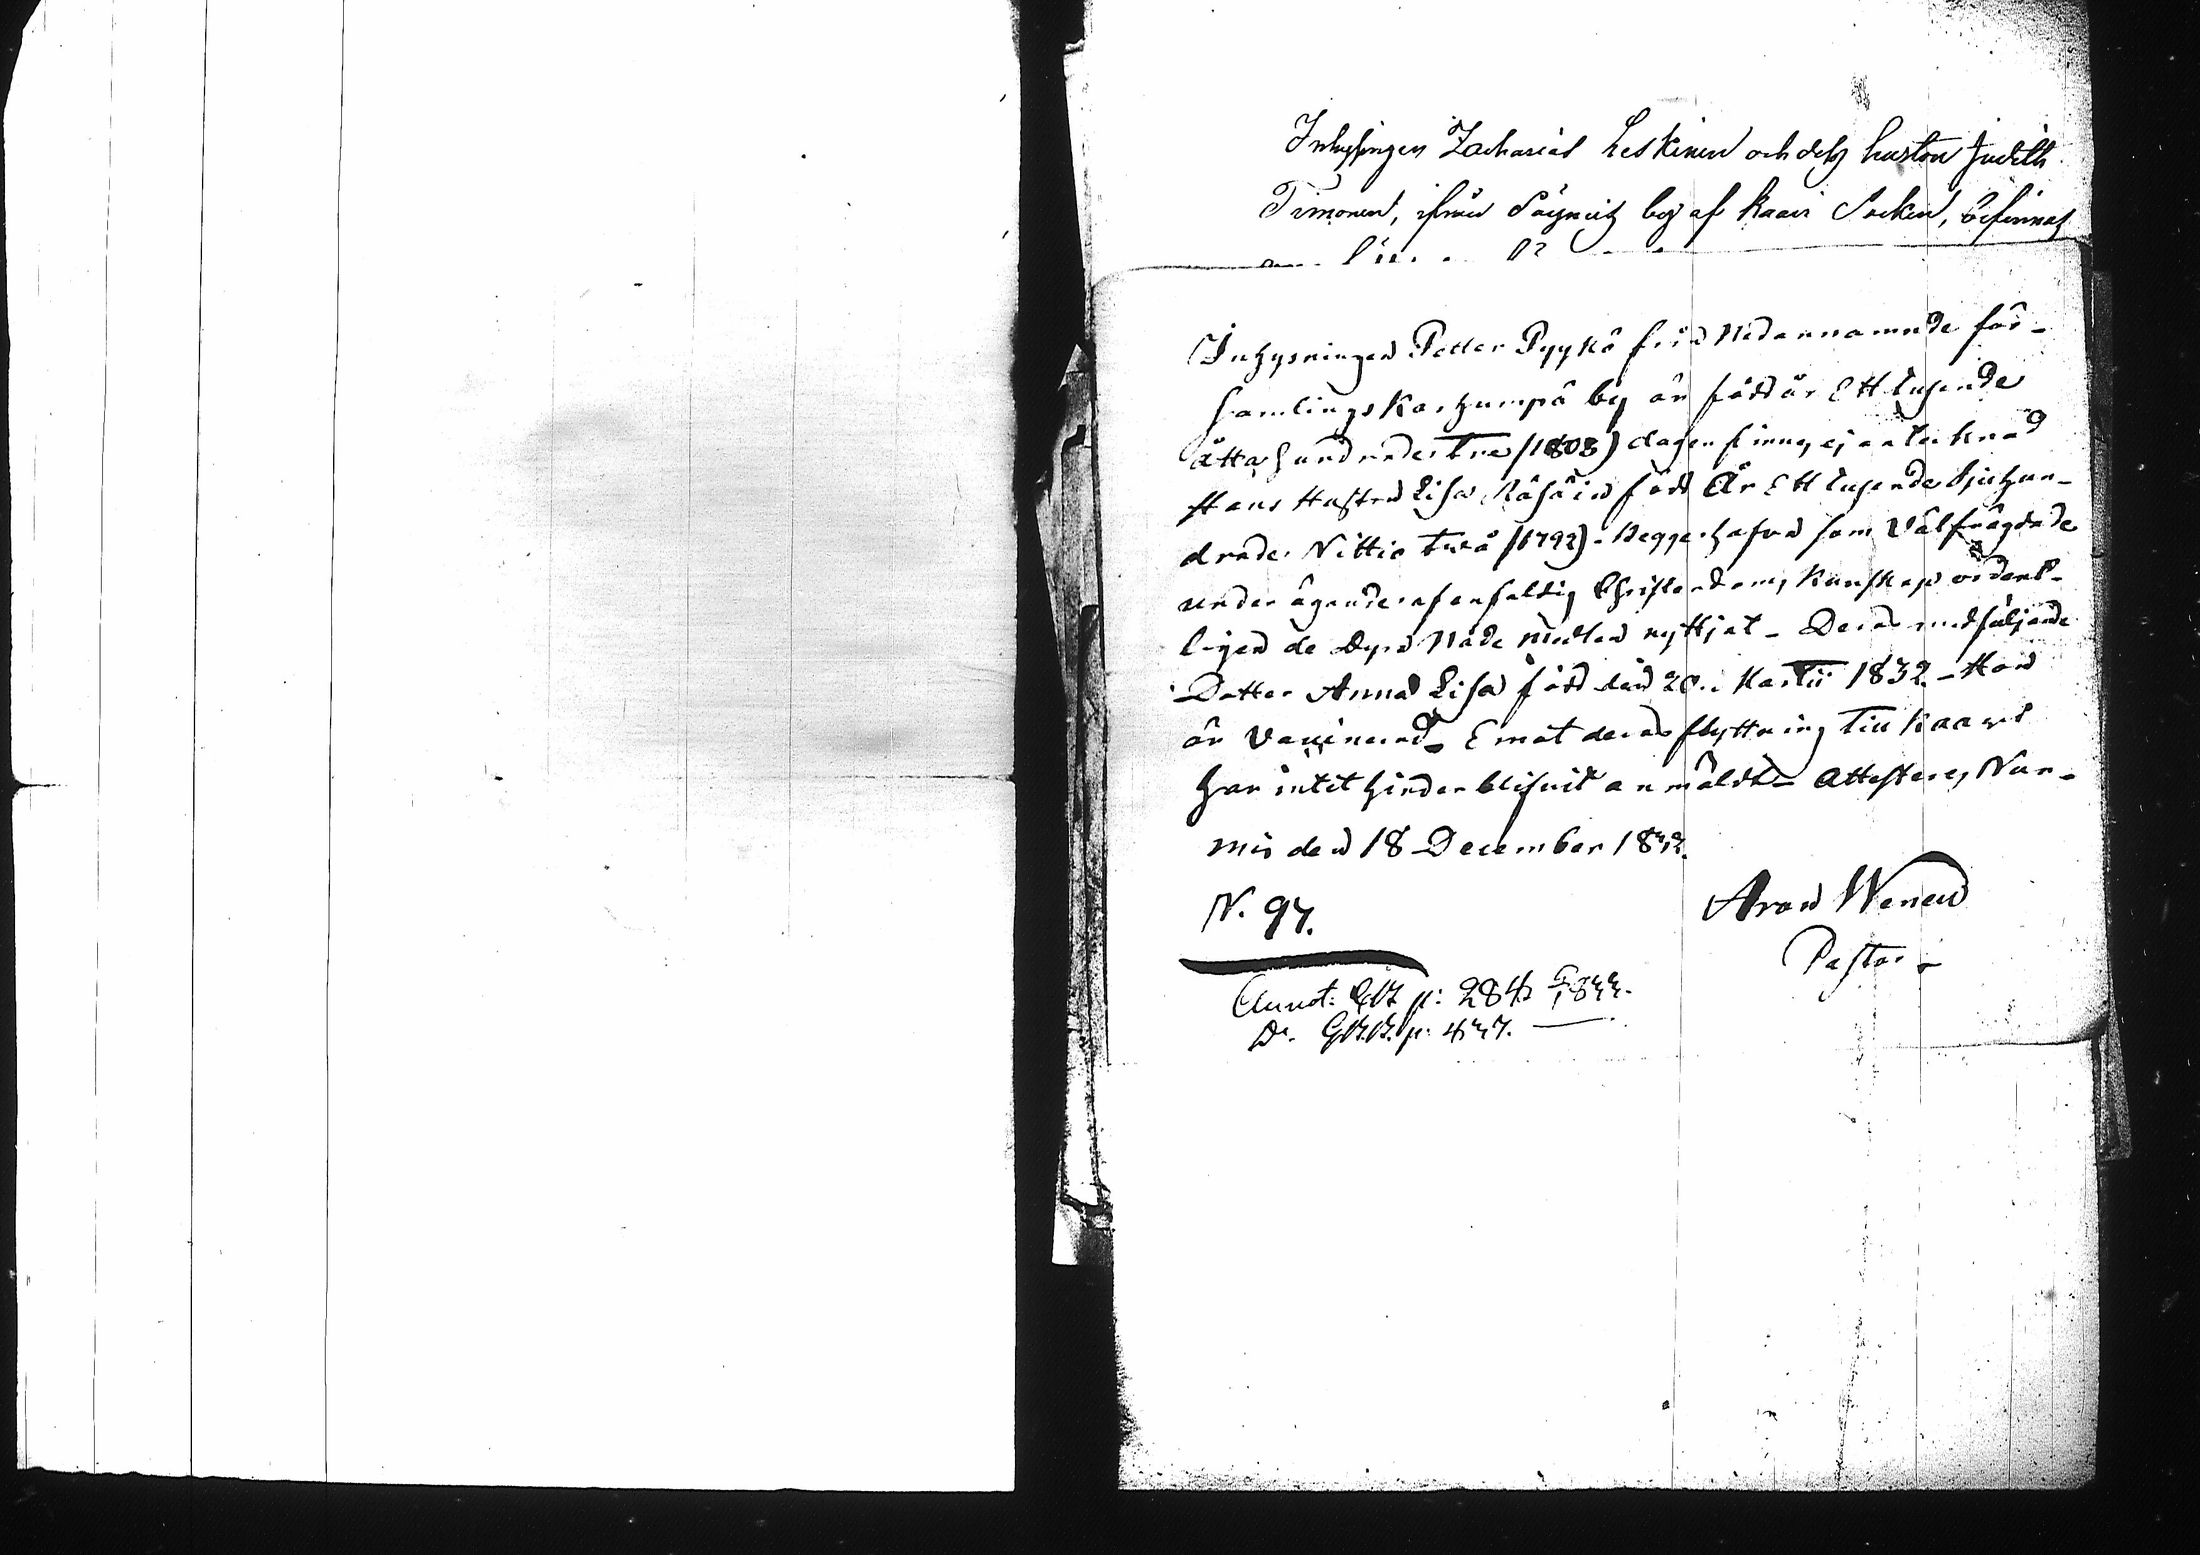 Inhysingen Zacharias Leskinen och dess hustru Judith
Timonen, ifrån Säyneis by af Kaavi Socken, befinnas
Inhysningen Petter Pyykö från Nedannamnde för-
samlings Karhunpä by är född år Ett tusende
åtta hundrade Tre (1803) dagen finnes ej antecknad
Hans Hustru Lisa Räsäin född År Ett tusende Sjuhun-
drade Nittio Två (1792) - Begge hafva som Välfrägdade
under ägande af enfaldig Christendoms Kunskap ordent-
ligen de dyra Nåde medlen nyttjat - Deras medföljande
Dotter Anna Lisa född den 20. Martii 1832 - Hon
är Vaccinerad - Emot deras flyttning till Kaavi
har intet hinder blifvit anmäldt - Attesteres Nur-
mis den 18 December 1832.
N. 97.
Aron Wenell
Pastor -
Annot: p: 284 1833.
Do. p: 437.